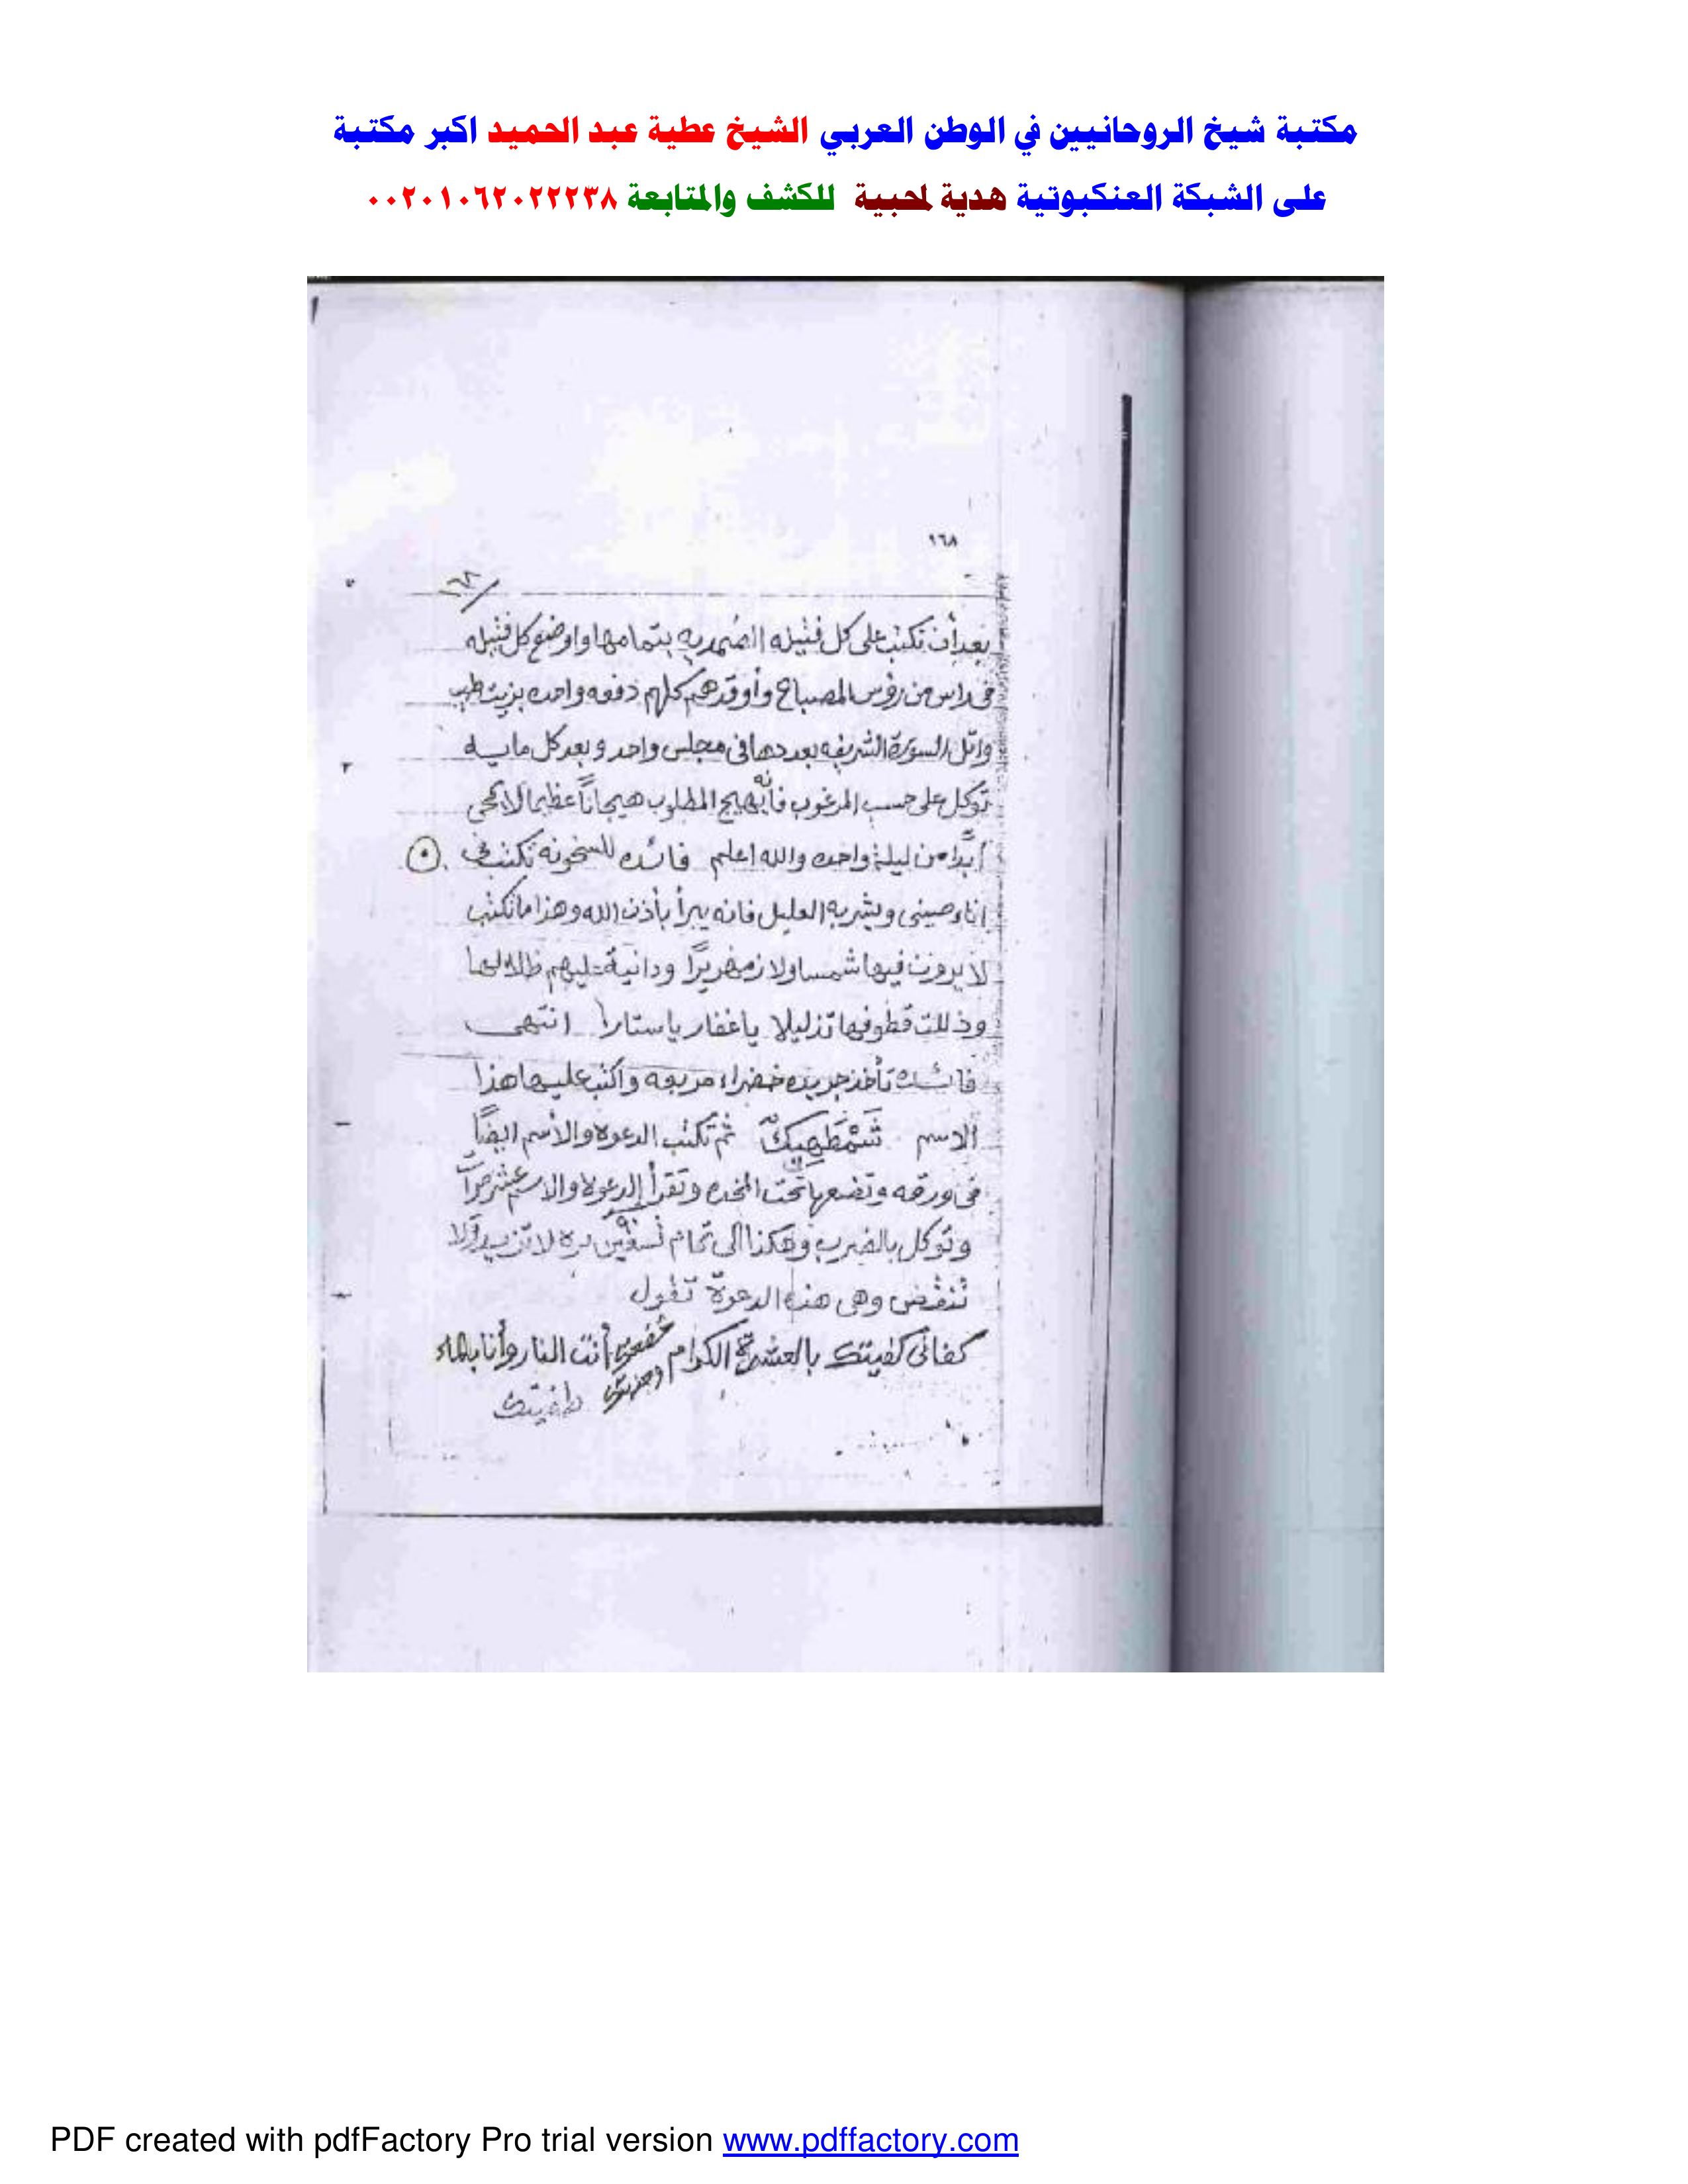 مكتبة شيخ الروحانيين في الوطن العربي الشيخ عطية عبد الحميد اكبر مكتبة
على الشبكة العنكبوتية هدية لمحبية للكشف والمتابعة ٠٠٢٠١٠٦٢٠٢٢٢٣٨
١٦٨
بعد أن تكتب على كل فتيله الصمديه بتمامها واوضع كل فتيله
فى راس من رؤس المصباح وأوقدهم كلهم دفعه واحده بزيت طيب
واتل السورة الشريفه بعددها فى مجلس واحد وبعد كل مايه
توكل على حسب المرغوب فأنه يهيج المطلوب هيجاناً عظيما
أبدا من ليلة واحده والله اعلم فائده للسخونه تكتب فى
اناء صينى ويشربه العليل فانه يبرأ بأذن الله وهذا ما تكتب
لا يرون فيها شمسا ولا زمهريرًا ودانية عليهم ظلالها
وذللت قطوفها تذليلا ياغفار ياستار انتهى
فائده تأخذ جريده خضراء مربعه واكتب عليها هذا
الاسم ثم تكتب الدعوه والأسم ايضاً
فى ورقه وتضعها تحت المخده وتقرأ الدعوه والاسم عشر مرات
وتوكل بالضرب وهكذا الى تمام تسعين مره لا تزيد ولا
تنقص وهى هذه الدعوة تقول
كفانى كفيتك بالعشرة الكرام أنت النار وأنا بالماء
طفيتك
PDF created with pdfFactory Pro trial version www.pdffactory.com